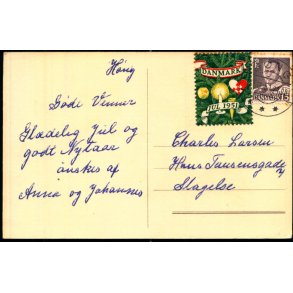 Høng
Gode Venner
Glædelig Jul og
godt Nytaar
ønskes af
Anna og Johannes
DANMARK
JUL 1951
Charles Larsen
Hans Tausensgade 7
Slagelse